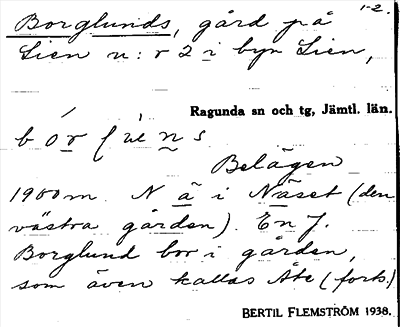 1-2.
Borglunds, gård på
Lien n:r 2 i byn Lien,
Ragunda sn och tg, Jämtl. län.
Belägen
1900 m. N ä i Näset (den
västra gården). En J.
Borglund bor i gården,
som även kallas Åte (forts.)
BERTIL FLEMSTRÖM 1938.